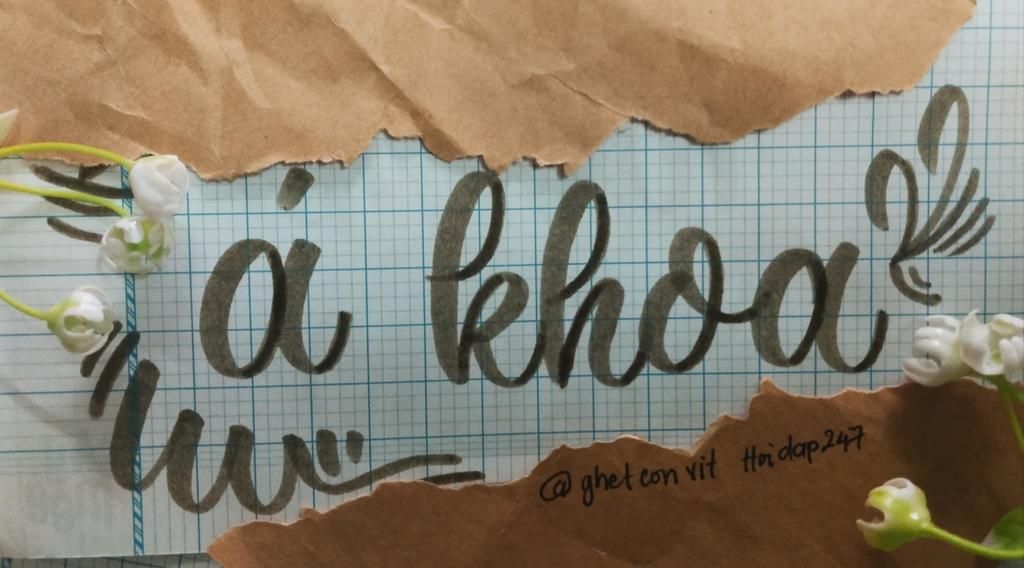 á khoa
@ghetconvit Hoidap247